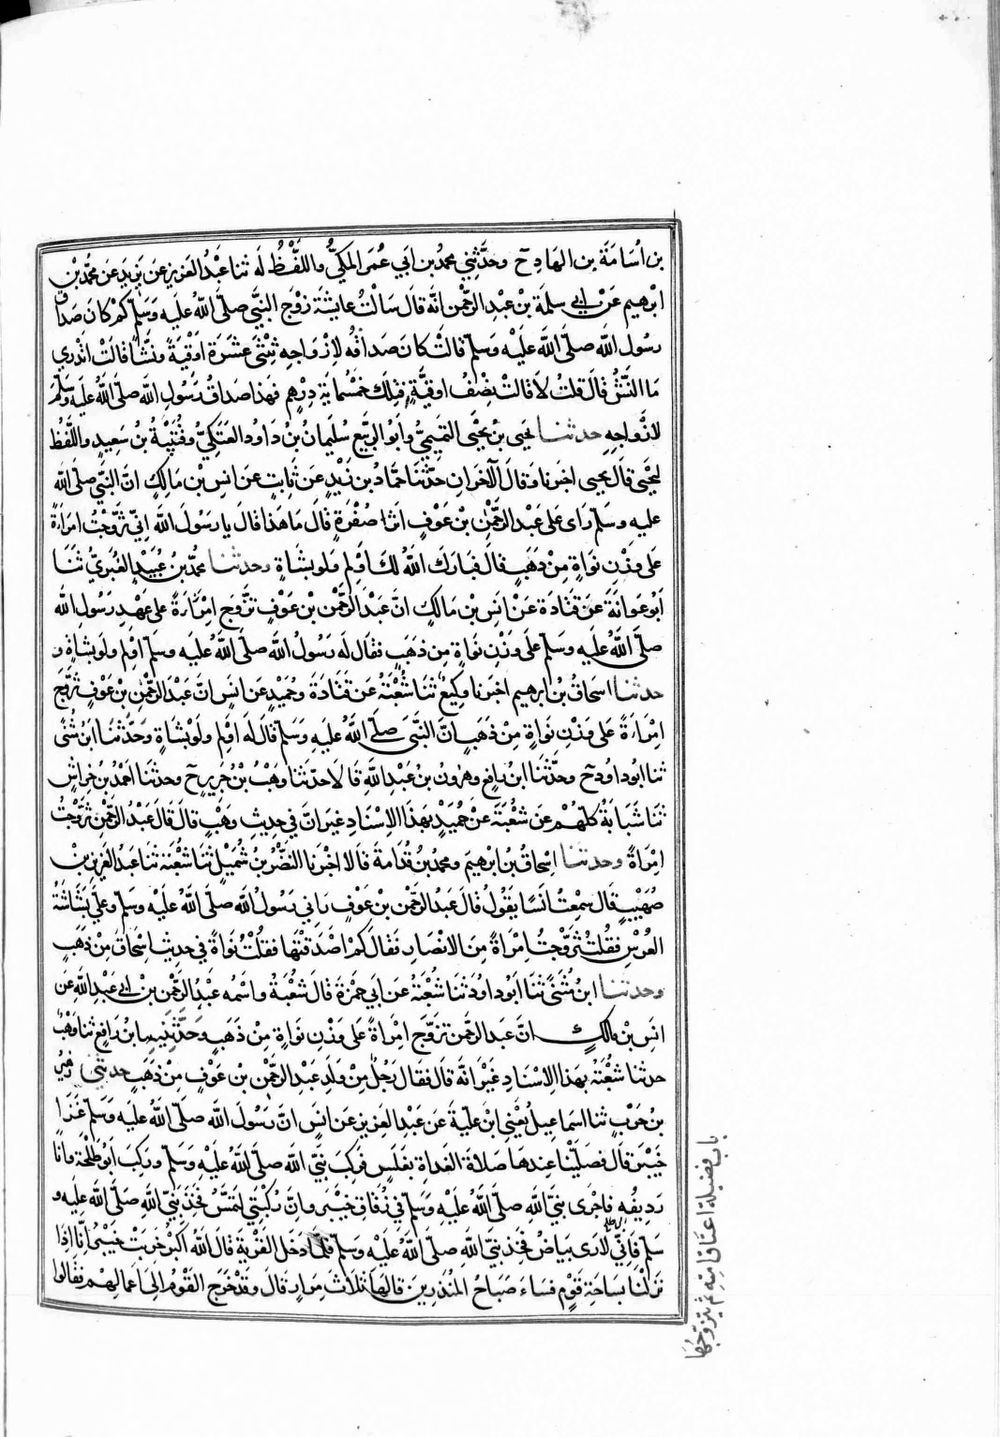 بن أسامة بن الهادح وحدثني محمد بن ابي عمر المكي واللفظ له ثنا عبد العزيز عن يزيد عن محمد بن
ابرهيم عن ابي سلمة بن عبد الرحمن انه قال سالت عايشة زوج النبي صلى الله عليه وسلم كم كان صداق
رسول الله صلى الله عليه وسلم قالت كان صداقه لازواجه ثنتي عشرة اوقية ونشا قالت اتدري
ما النش قال قلت لا قالت نصف اوقية فتلك خمسماية درهم فهذا صداق رسول الله صلى الله عليه وسلم
لازواجه حدثنا يحيى بن يحيى التميمي وابو الربيع سليمان بن داود العتكي وقتيبة بن سعيد واللفظ
ليحيى قال يحيى اخبرنا وقال الآخران حدثنا حماد بن زيد عن ثابت عن انس بن مالك ان النبي صلى الله
عليه وسلم راى على عبد الرحمن بن عوف اثر صفرة قال ما هذا قال يا رسول الله اني تزوجت امراءة
على وزن نواة من ذهب قال فبارك الله لك اولم ولو بشاة وحدثنا محمد بن عبيد الغبري ثنا
ابو عوانة عن قتادة عن انس بن مالك ان عبد الرحمن بن عوف تزوج امراءة على عهد رسول الله
صلى الله عليه وسلم على وزن نواة من ذهب فقال له رسول الله صلى الله عليه وسلم اولم ولو بشاة و
حدثنا اسحاق بن ابرهيم اخبرنا وكيع ثنا شعبة عن قتادة وحميد عن انس ان عبد الرحمن بن عوف تزوج
امراءة على وزن نواة من ذهب ان النبي صلى الله عليه وسلم قال له اولم ولو بشاة وحدثنا ابن مثنى
ثنا ابو داود ح وحدثنا ابن رافع وهرون بن عبد الله قالا حدثنا وهب بن جرير ح وحدثنا احمد بن خراش
ثنا شبابة كلهم عن شعبة عن حميد بهذا الاسناد غير ان في حديث وهب قال قال عبد الرحمن تزوجت
امراة وحدثنا اسحاق بن ابرهيم ومحمد بن قدامة قالا اخبرنا النضر بن شميل ثنا شعبة ثنا عبد العزيز بن
صهيب قال سمعت انسا يقول قال عبد الرحمن بن عوف راني رسول الله صلى الله عليه وسلم وعلي بشاشة
العرس فقلت تزوجت امراة من الانصار فقال كم اصدقتها فقلت نواة في حديث اسحاق من ذهب
وحدثنا ابن مثنى ثنا ابو داود ثنا شعبة عن ابي حمزة قال شعبة واسمه عبد الرحمن بن ابي عبد الله عن
انس بن مالك ان عبد الرحمن تزوج امراة على وزن نواة من ذهب وحدثنيه ابن رافع ثنا وهب
حدثنا شعبة بهذا الاسناد غير انه قال فقال رجل من ولد عبد الرحمن بن عوف من ذهب حدثني زهير
بن حرب ثنا اسماعيل يعني ابن علية عن عبد العزيز عن انس ان رسول الله صلى الله عليه وسلم غزا
خيبر قال فصلينا عندها صلاة الغداة بغلس فركب نبي الله صلى الله عليه وسلم وركب ابو طلحة وانا
رديفه فاجرى نبي الله صلى الله عليه وسلم في زقاق خيبر وان ركبتي لتمس فخذ نبي الله صلى الله عليه و
سلم فاني لارى بياض فخذ نبي الله صلى الله عليه وسلم فلما دخل القرية قال الله اكبر خربت خيبر انا اذا
نزلنا بساحة قوم فساء صباح المنذرين قالها ثلاث مرار قال وقد خرج القوم الى اعمالهم فقالوا
باب فضيلة اعتاق امته ثم يتزوجها